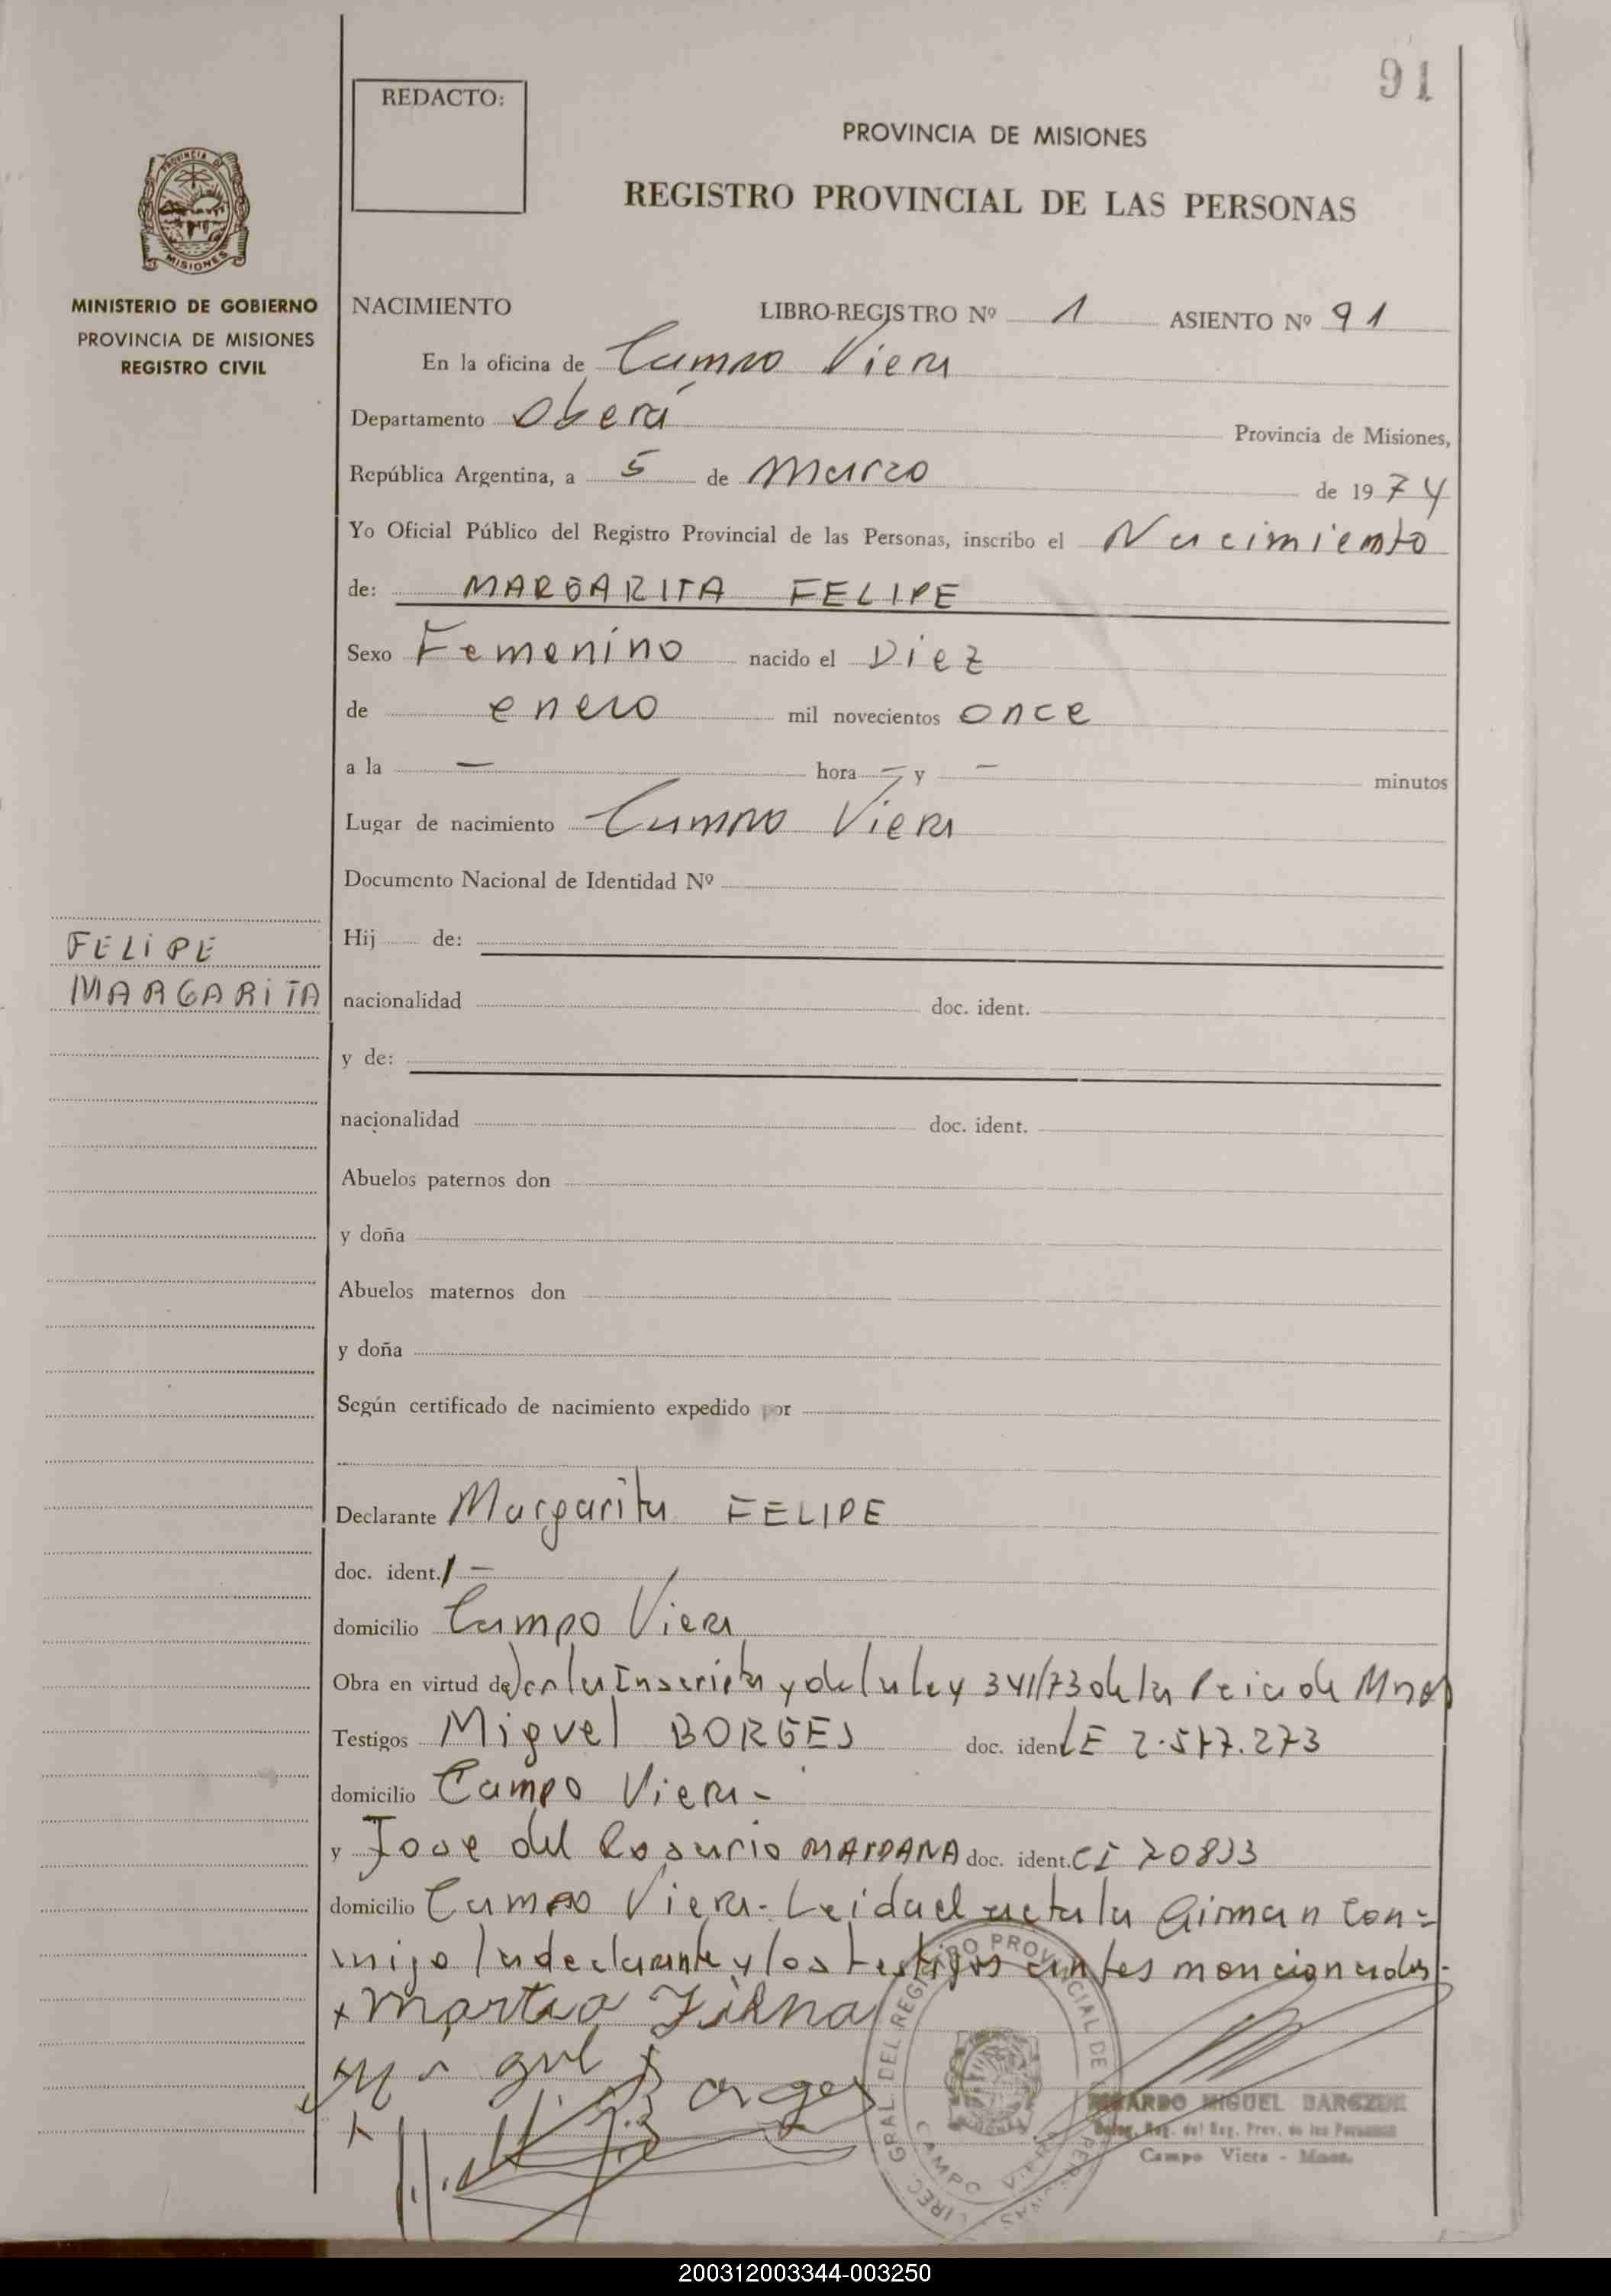 91
REDACTO:
PROVINCIA DE MISIONES
REGISTRO PROVINCIAL DE LAS PERSONAS
PROVINCIA DE
MISIONES
MINISTERIO DE GOBIERNO
PROVINCIA DE MISIONES
REGISTRO CIVIL
NACIMIENTO LIBRO-REGISTRO Nº 1 ASIENTO Nº 91
En la oficina de Campo Viera
Departamento Oberá Provincia de Misiones,
República Argentina, a 5 de Marzo de 1974
Yo Oficial Público del Registro Provincial de las Personas, inscribo el Nacimiento
de: MARGARITA FELIPE
Sexo Femenino nacido el Diez
de enero mil novecientos once
a la — hora — y — minutos
Lugar de nacimiento Campo Viera
Documento Nacional de Identidad Nº
Hij de:
FELIPE
MARGARITA
nacionalidad doc. ident.
y de:
nacionalidad doc. ident.
Abuelos paternos don
y doña
Abuelos maternos don
y doña
Según certificado de nacimiento expedido por
Declarante Margarita FELIPE
doc. ident. —
domicilio Campo Viera
Obra en virtud de y de la ley 341/73 de la Pcia de Mnes
Testigos Miguel BORGES doc. ident LE 2.517.273
domicilio Campo Viera -
y Jose del Rosario MAIDANA doc. ident. CI 70833
domicilio Campo Viera - Leida el acta la firman con=
migo la declarante y los testigos antes mencionados.-
x
Miguel Borges
x
GRAL. DEL REGISTRO PROVINCIAL DE PERSONAS
CAMPO VIERA
RICARDO MIGUEL
Deleg. Reg. del Reg. Prov. de las Personas
Campo Viera - Mnes.
200312003344-003250